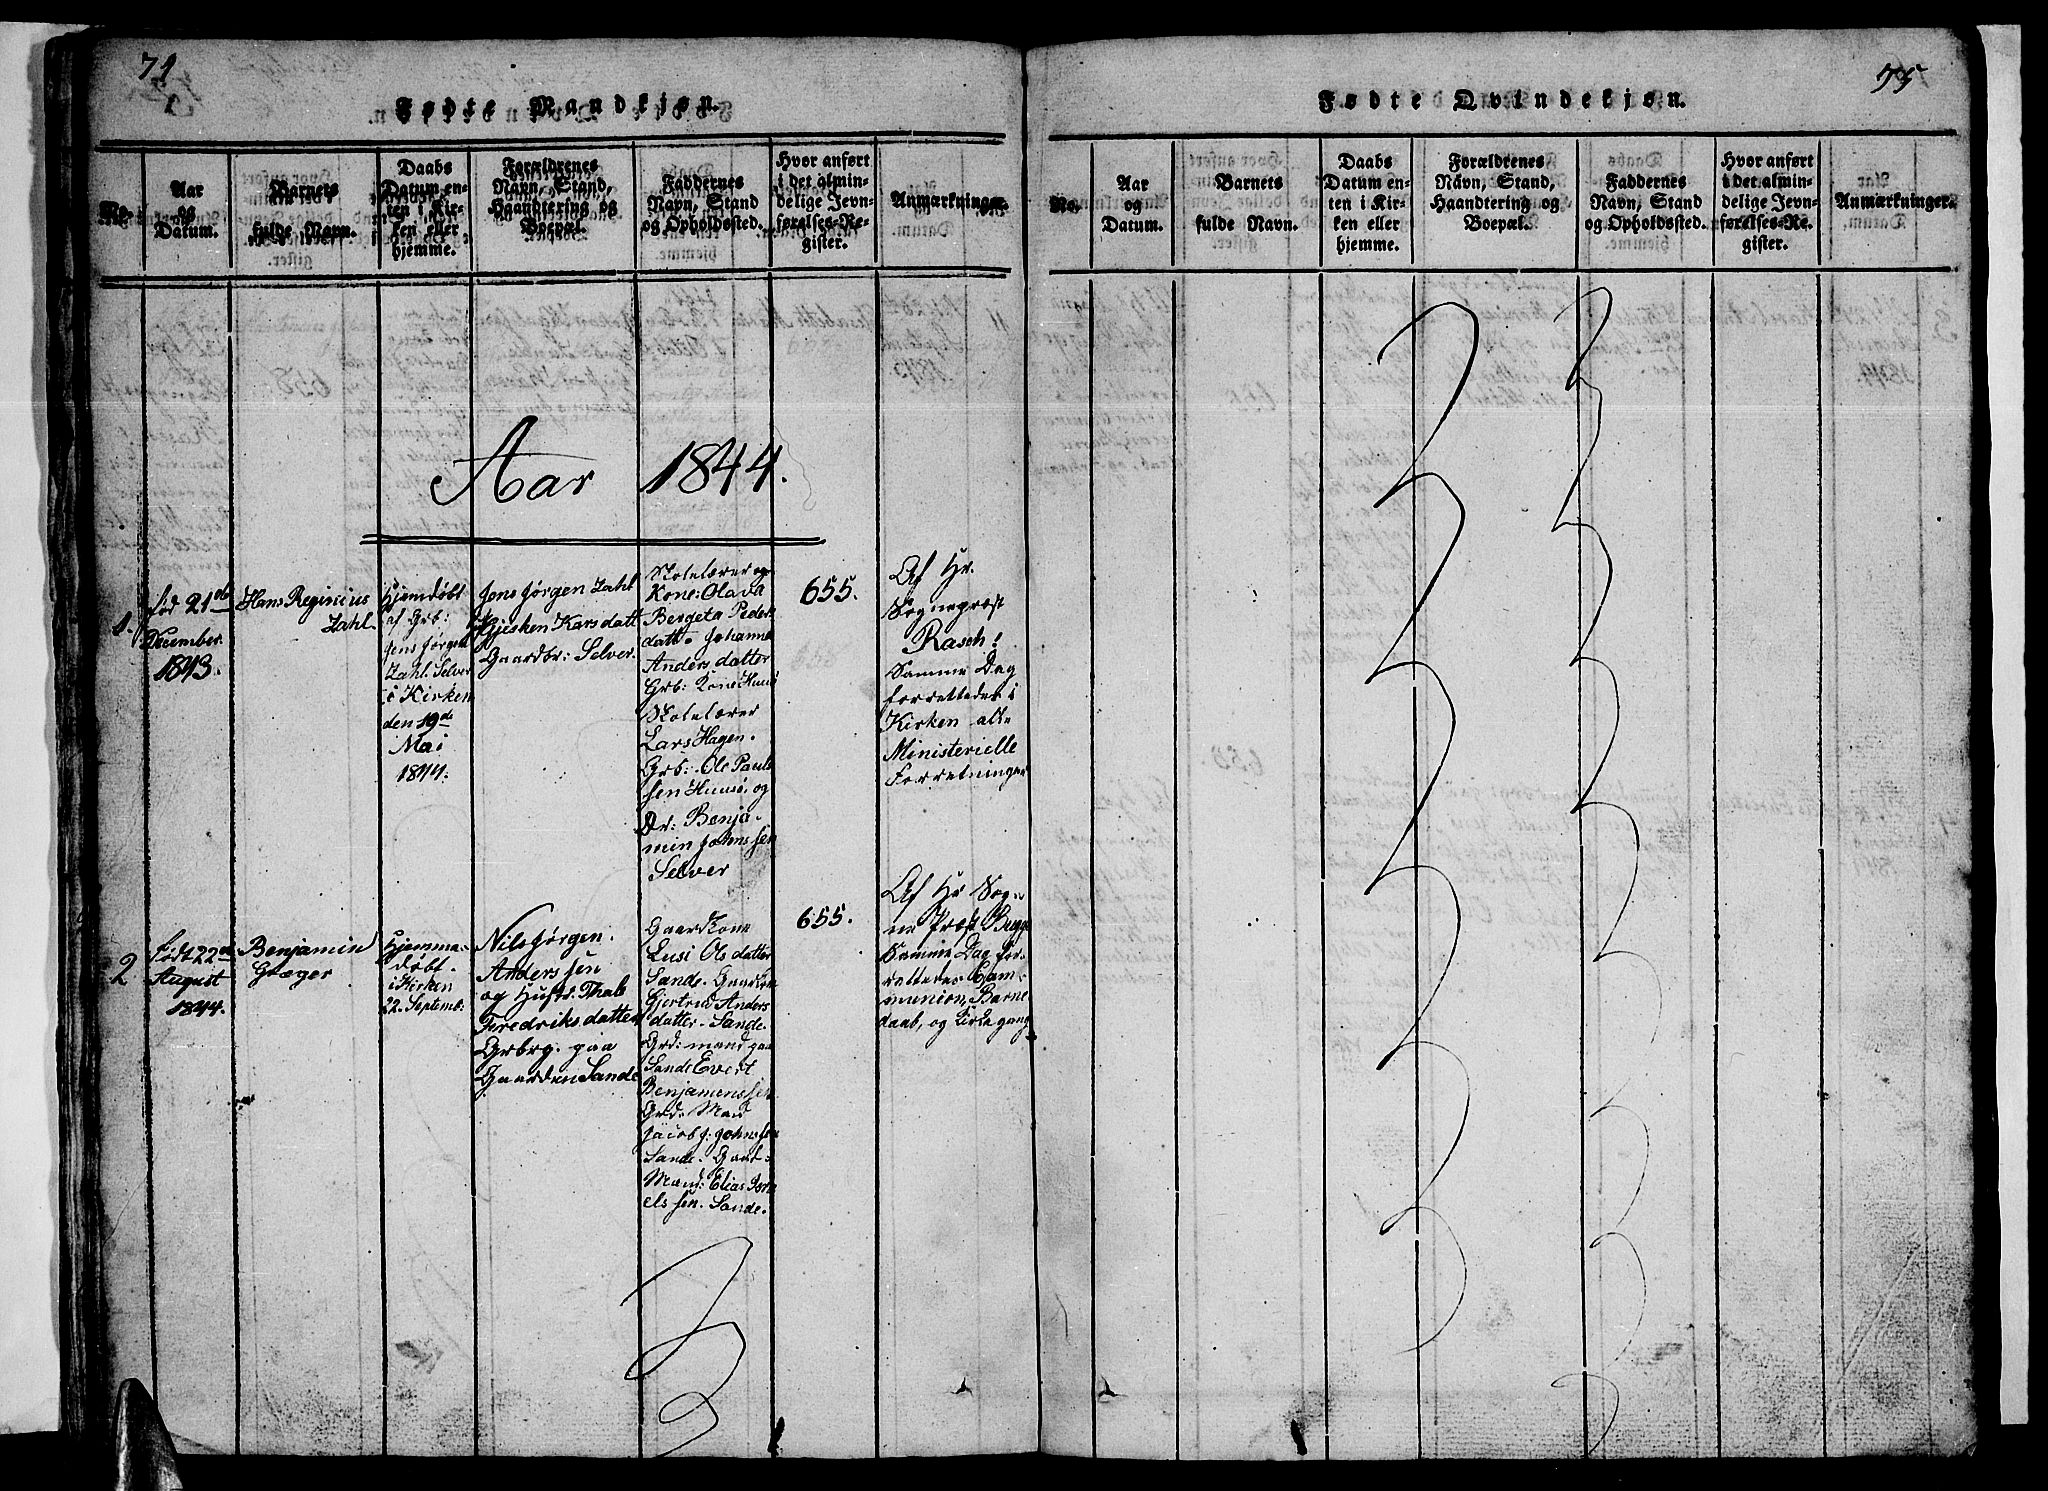 74
Fødte Mandkjøn.
No.
Aar
og
Datum.
Barnets
fulde Navn.
Daabs
Datum en-
ten i Kir-
ken eller
hjemme.
Forældrenes
Navn, Stand,
Haandtering og
Boepæl.
Faddernes
Navn, Stand
og Opholdssted.
Hvor anført
i det almin-
delige Jevn-
førelses-Re-
gister.
Anmærkninger.
Aar 1844.
1.
fød 21de
December
1843.
Hans Reginius
Zahl.
Hjemdøbt
af Grb:
Jens Jørgen
Zahl. Selver
i Kirken
den 19de
Mai
1844.
Jens Jørgen Zahl
Karsdatt
Gaardbr: Selver.
Skolelærer og
Kone: Olava
Bergeta Peders
datt. Johanna
Anders datter
Grb: Kone Huusø
Skolelærer
Lars Hagen.
Grb: Ole Pauls
sen Huusø, og
Dr: Benja-
min Johnssen
Selver
655.
Af Hr.
Sogneprest
Rasch!
Samme Dag
forrettedes i
Kirken alle
Ministerielle
Forretninger
2
født 22de
August
1844.
Benjamin
Græger
Hjemme-
døbt.
i Kirken
22. Septemb:
Nils Jørgen.
Anderssen
og Hustr: Thale
Fredriksdatter
Grbrg. paa
Gaarden Sande
Gaardkone
Lusi Olsdatter
Sande. Gaardkon
Gjertrud Anders
datter. Sande.
Grd: mand paa
Sande Evert
Benjamenssen
Grd: Mand
Jacob J: Johnssen
Sande. Gaard-
Mand: Elias
elssen. Sande.
655.
Af Hr Sog-
ne Prest
Samme Dag for-
rettedes Com-
munion, Barne
daab, og Kirkegang
75
Fødte Qvindekjøn.
No.
Aar
og
Datum.
Barnets
fulde Navn.
Daabs
Datum en-
ten i Kir-
ken eller
hjemme.
Forældrenes
Navn, Stand,
Haandtering og
Boepæl.
Faddernes
Navn, Stand
og Opholdssted.
Hvor anført
i det almin-
delige Jevn-
førelses-Re-
gister.
Anmærkninger.